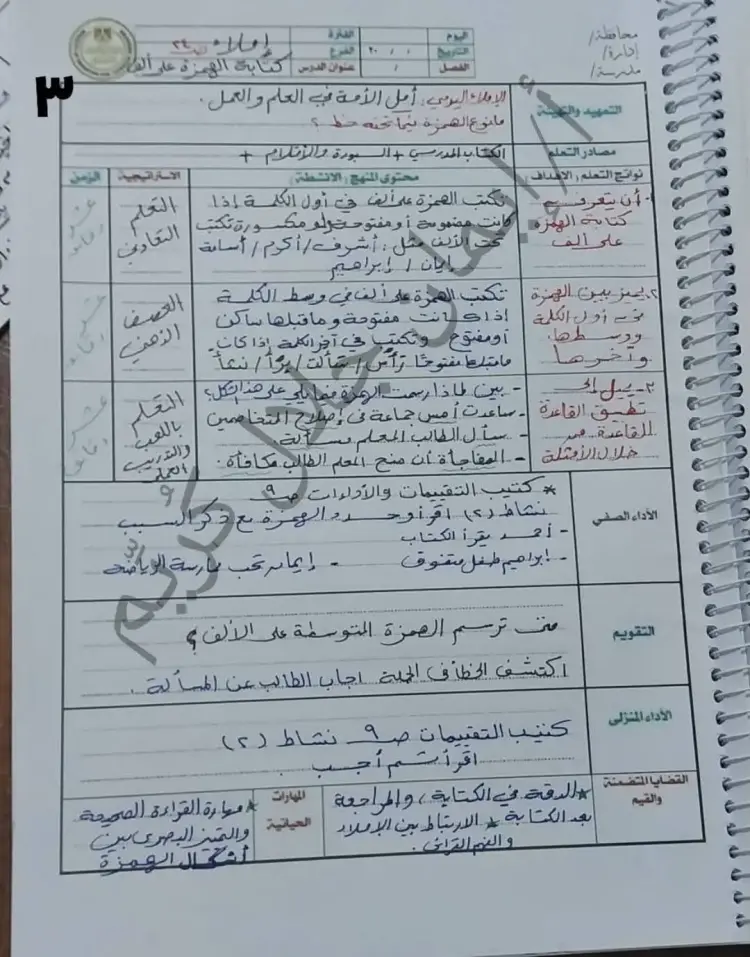 محافظة/
إدارة/
مدرسة/
اليوم
الفترة
التاريخ / / ٢٠
الفرع
إملاء
الفصل /
عنوان الدرس
كتابة الهمزة على ألف
٣
التمهيد والتهيئة
الإملاء اليومي: أمل الأمة في العلم والعمل.
ما نوع الهمزة فيما تحته خط ؟
مصادر التعلم
الكتاب المدرسي + السبورة والأقلام +
نواتج التعلم : الأهداف :
محتوى المنهج : الأنشطة :
الاستراتيجية
الزمن
١- أن يتعرف
كتابة الهمزة
على ألف
تكتب الهمزة على ألف في أول الكلمة إذا
كانت مضمومة أو مفتوحة ولو مكسورة تكتب
تحت الألف مثل: أشرف / أكرم / أسامة
إيمان / إبراهيم
التعلم
التعاوني
عشر
دقائق
٢- يميز بين الهمزة
في أول الكلمة
ووسطها
وآخرها
تكتب الهمزة على ألف في وسط الكلمة
إذا كانت مفتوحة وما قبلها ساكن
أو مفتوح وتكتب في آخر الكلمة إذا كان
ما قبلها مفتوحًا رأس / سألت / بدأ / نشأ
العصف
الذهني
عشر
دقائق
٣- يميل إلى
تطبيق القاعدة
القاعدة من
خلال الأمثلة
- بين لماذا رسمت الهمزة فيما يلي على هذا الشكل؟
- ساعدت أمس جماعة في إصلاح المتخاصمين
- سأل الطالب المعلم مسألة
- المفاجأة أن منح المعلم الطالب مكافأة.
التعلم
باللعب
والتدريب
العملي
عشر
دقائق
الأداء الصفي
* كتيب التقييمات والأداءات ص٩
نشاط (٢) اقرأ وحدد الهمزة مع ذكر السبب
- أحمد يقرأ الكتاب
- إبراهيم طفل متفوق - إيمان تحب ممارسة الرياضة
التقويم
متى ترسم الهمزة المتوسطة على الألف؟
اكتشف الخطأ في الجملة اجاب الطالب عن المسألة .
الأداء المنزلي
كتيب التقييمات ص٩ نشاط (٢)
اقرأ ثم أجب
القضايا المتضمنة
والقيم
* الدقة في الكتابة، والمراجعة
بعد الكتابة * الارتباط بين الإملاء
والفهم القرائي.
المهارات
الحياتية
* مهارة القراءة الصحيحة
والتميز البصري بين
أشكال الهمزة
أ/إيمان جلال كريم